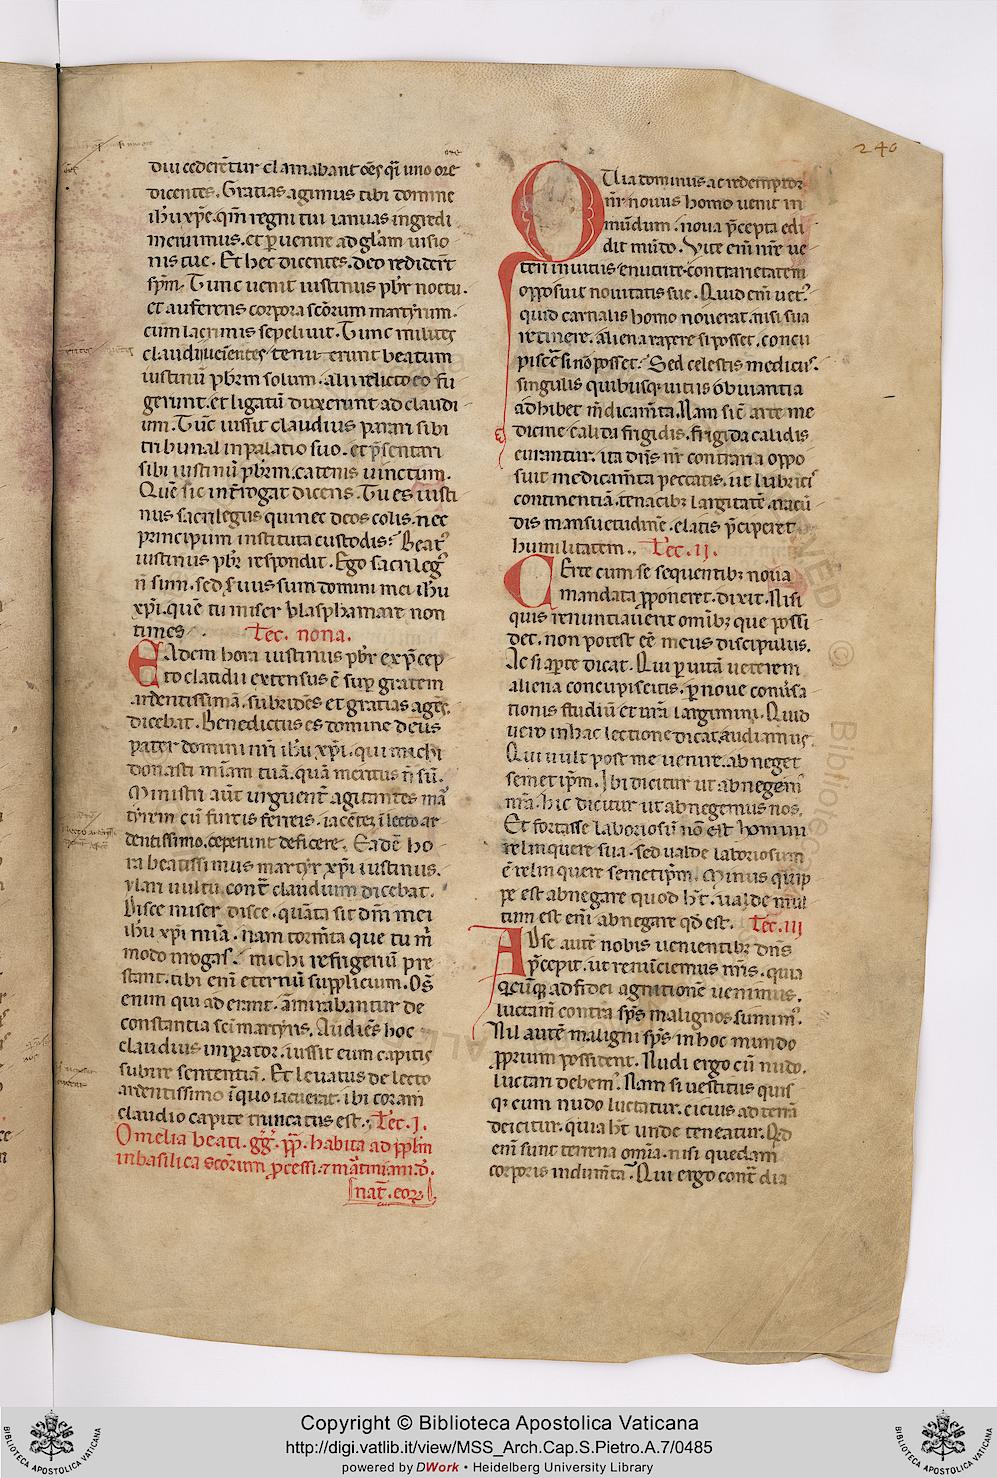 240
diu cederēt̄ur clamabant oēs q̄i uno ore
dicentes. Gratias agimus tibi domine
ihu xp̄e. qm̄ regni tui ianuas ingredi
meruimus. et puenire ad gl̄am uisio
nis tue. Et hec dicentes. deo redider̄t
sp̄m. Tunc uenit iustinus pbr̄ noctu.
et auferens corpora sc̄orum martyrum.
cum lacrimis sepeliuit. Tunc milites
claudii tenuerunt beatum
iustinū pbrm̄ solum. alii relicto eo fu
gerunt. et ligatū duxerunt ad claudi
um. Tūc iussit claudius parari sibi
tribunal in palatio suo. et p̄sentari
sibi iustinū pbrm̄. catenis uinctum.
Quē sic int̄rogat dicens. Tu es iusti
nus sacrilegus qui nec deos colis. nec
principum instituta custodis? Beat᾽
iustinus pbr̄ respondit. Ego sacrileg᾽
n̄ sum. sed s̄uus sum domini mei ihu
xp̄i. quē tu miser blasphamare non
times. Lec. nona.
EAdem hora iustinus pbr̄ ex p̄cep
to claudii extensus ē sup gratem
ardentissimā. subridēs et gratias agēs.
dicebat. Benedictus es domine deus
pater domini nr̄i ihu xp̄i. qui michi
donasti mīam tuā. quā meritus n̄ sū.
Ministri aūt urguent̄ agitantes ma
tyrem cū furcis ferreis. iacēte ī lecto ar
dentissimo. ceperunt deficere. Eadē ho
ra beatissimus martyr xp̄i iustinus.
ylari uultu. cont̄ claudium dicebat.
Disce miser disce. quāta sit dn̄i mei
ihu xp̄i mīa. nam torm̄ta que tu m̄
modo irrogas. michi refrigeriū pre
stant. tibi enī eternū supplicium. Oēs
enim qui aderant. āmirabantur de
constantia sc̄i martyris. Audiēs hoc
claudius imperator. iussit eum capitis
subire sententiā. Et leuatus de lecto
ardentissimo īquo iacuerat. ibi coram
claudio capite truncatus est. Lec. I.
Omelia beati. gg̅. pp̅. habita ad pplm̄
in basilica sc̄orum p̄cessi. ⁊ martiniani. ī.
nat̄. eoꝝ
OUia dominus ac redemptor
nr̄ nouus homo uenit in
mūdum. noua p̄cepta edi
dit mūdo. Vite eni nr̄e ue
teri in uitiis enutrite. contrarietatem
opposuit nouitatis sue. Quid eni uet᾽.
quid carnalis homo nouerat. nisi sua
retinere. aliena rapere si posset. concu
piscē si nō posset? Sed celestis medicus.
singulis quibusq; uitiis obuiantia
adhibet m̄dicam̄ta. Nam sic̄ arte me
dicine calida frigidis. frigida calidis
curantur. ita dn̄s nr̄ contraria oppo
suit medicam̄ta peccatis. ut lubricis
continentiā. tenacib; largitatē. iracū
dis mansuetudinē. elatis p̄ciperet
humilitatem. Lec. II.
CErte cum se sequentib; noua
mandata pponeret. dixit. Nisi
quis renuntiauerit omīb; que possi
det. non potest eē meus discipulus.
Ac si apte dicat. Qui p uitā ueterem
aliena concupiscitis. p noue conūsa
tionis studiū et urā largimini. Quid
uero in hac lectione dicat. audiamus.
Qui uult post me uenire. abneget
semetipm̄. Ibi dicitur ut abnegem᾽
nr̄a. hic dicitur ut abnegemus nos.
Et fortasse laboriosū nō est homini
relinquere sua. sed ualde laboriosum
ē relinquere semetipm̄. Minus quip
pe est abnegare quod h̄t. ualde mul
tum est enī abnegare qd̄ est. Lec. III
ADse autē nobis uenientib; dn̄s
p̄cepit. ut renūciemus nr̄is. quia
q̄cūq; ad fidei agnitionē uenimus.
luctam̄ contra sp̄s malignos sumim᾽.
Nil autē maligni sp̄s in hoc mundo
pprium possident. Nudi ergo cū nudis.
luctari debem᾽. Nam si uestitus quis
q; cum nudo luctatur. cicius ad terrā
deicitur. quia h̄t unde teneatur. Qd̄
enī sunt terrena omīa. nisi quedam
corporis indum̄ta. Qui ergo cont̄ dia
Copyright © Biblioteca Apostolica Vaticana
http://digi.vatlib.it/view/MSS_Arch.Cap.S.Pietro.A.7/0485
powered by DWork • Heidelberg University Library
BIBLIOTECA APOSTOLICA VATICANA
BIBLIOTECA APOSTOLICA VATICANA